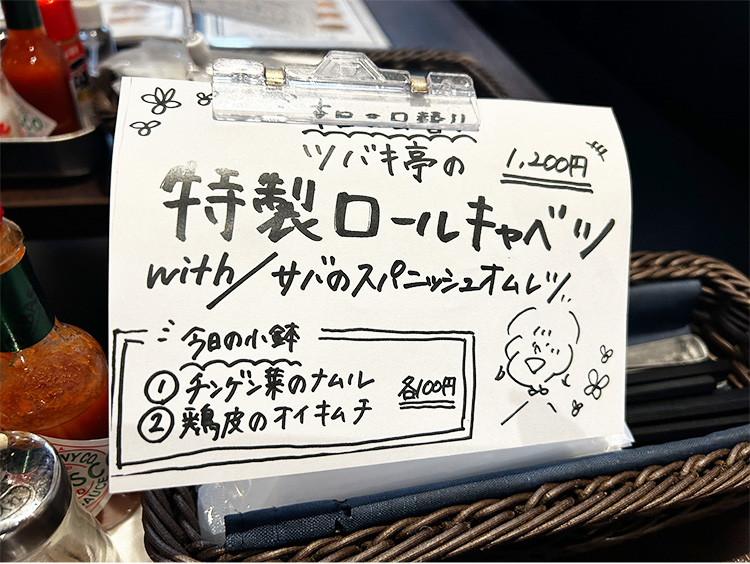 ツバキ亭の
1,200円
特製ロールキャベツ
with/サバのスパニッシュオムレツ
今日の小鉢
① チンゲン菜のナムル
各100円
② 鶏皮のオイキムチ